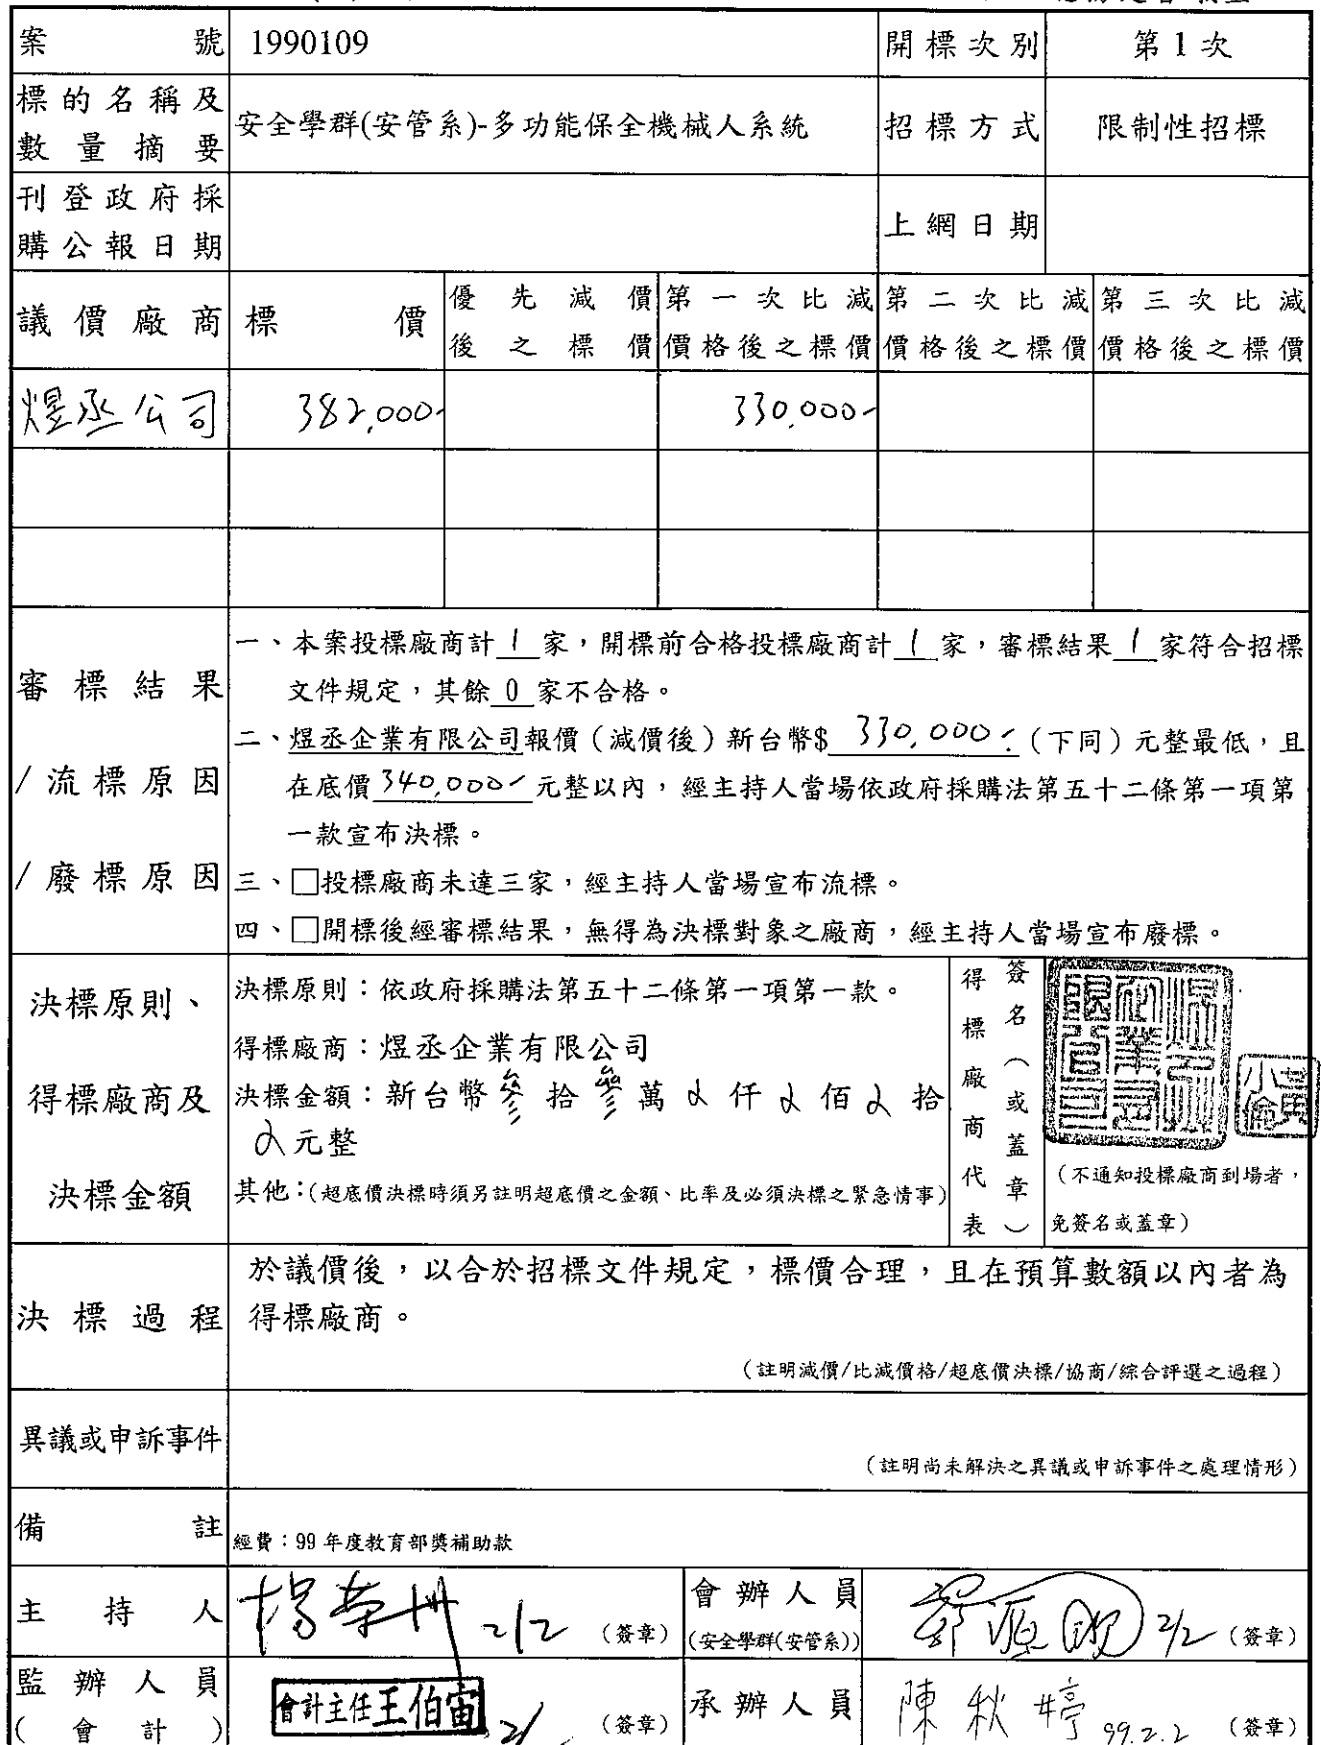 案號 1990109 開標次別 第1次
標的名稱及
數量摘要 安全學群(安管系)-多功能保全機械人系統 招標方式 限制性招標
刊登政府採
購公報日期 上網日期
議價廠商 標價 優先減價
後之標價 第一次比減
價格後之標價 第二次比減
價格後之標價 第三次比減
價格後之標價
煜丞公司 382,000- 330,000-
審標結果
/流標原因
/廢標原因
一、本案投標廠商計 1 家，開標前合格投標廠商計 1 家，審標結果 1 家符合招標
文件規定，其餘 0 家不合格。
二、煜丞企業有限公司報價（減價後）新台幣$ 330,000-（下同）元整最低，且
在底價 340,000- 元整以內，經主持人當場依政府採購法第五十二條第一項第
一款宣布決標。
三、□投標廠商未達三家，經主持人當場宣布流標。
四、□開標後經審標結果，無得為決標對象之廠商，經主持人當場宣布廢標。
決標原則、
得標廠商及
決標金額
決標原則：依政府採購法第五十二條第一項第一款。
得標廠商：煜丞企業有限公司
決標金額：新台幣 參 拾 參 萬 0 仟 0 佰 0 拾
0 元整
其他：(超底價決標時須另註明超底價之金額、比率及必須決標之緊急情事)
得標廠商代表
簽名（或蓋章）
黃小倫
（不通知投標廠商到場者，
免簽名或蓋章）
決標過程
於議價後，以合於招標文件規定，標價合理，且在預算數額以內者為
得標廠商。
（註明減價/比減價格/超底價決標/協商/綜合評選之過程）
異議或申訴事件
（註明尚未解決之異議或申訴事件之處理情形）
備註 經費：99 年度教育部獎補助款
主持人 2/2 （簽章） 會辦人員
(安全學群(安管系)) 2/2 （簽章）
監辦人員
(會計) 會計主任王伯宙 （簽章） 承辦人員 陳秋婷 99.2.2 （簽章）